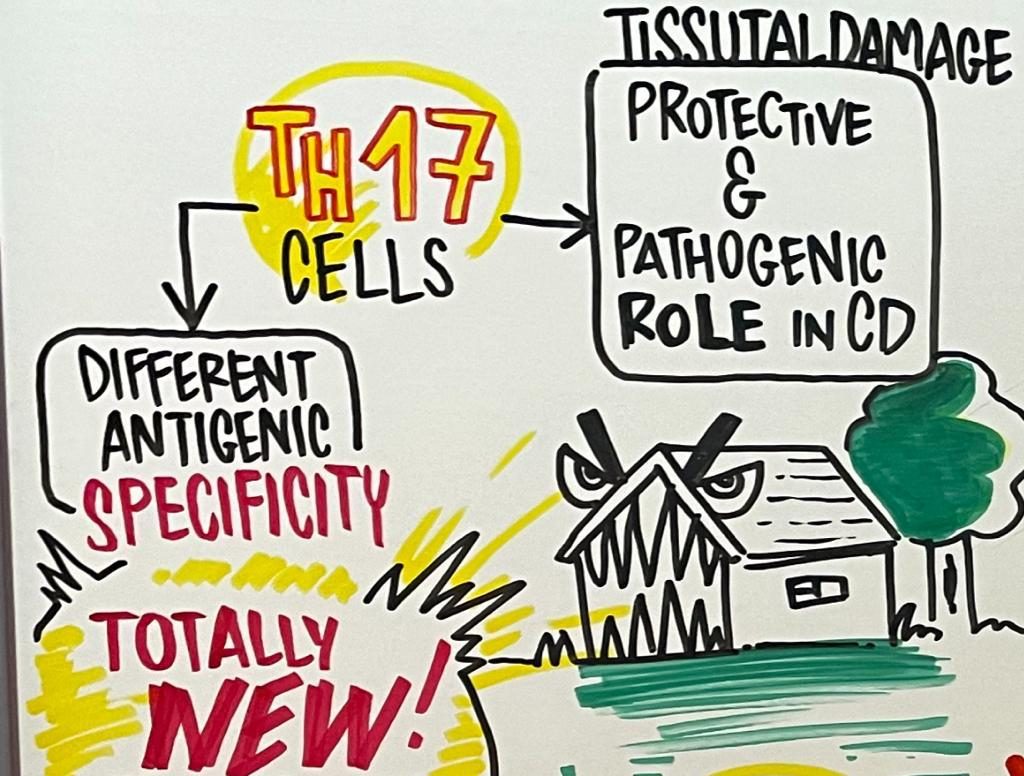 TISSUTAL DAMAGE
PROTECTIVE
&
PATHOGENIC
ROLE IN CD
TH17
CELLS
DIFFERENT
ANTIGENIC
SPECIFICITY
TOTALLY
NEW!